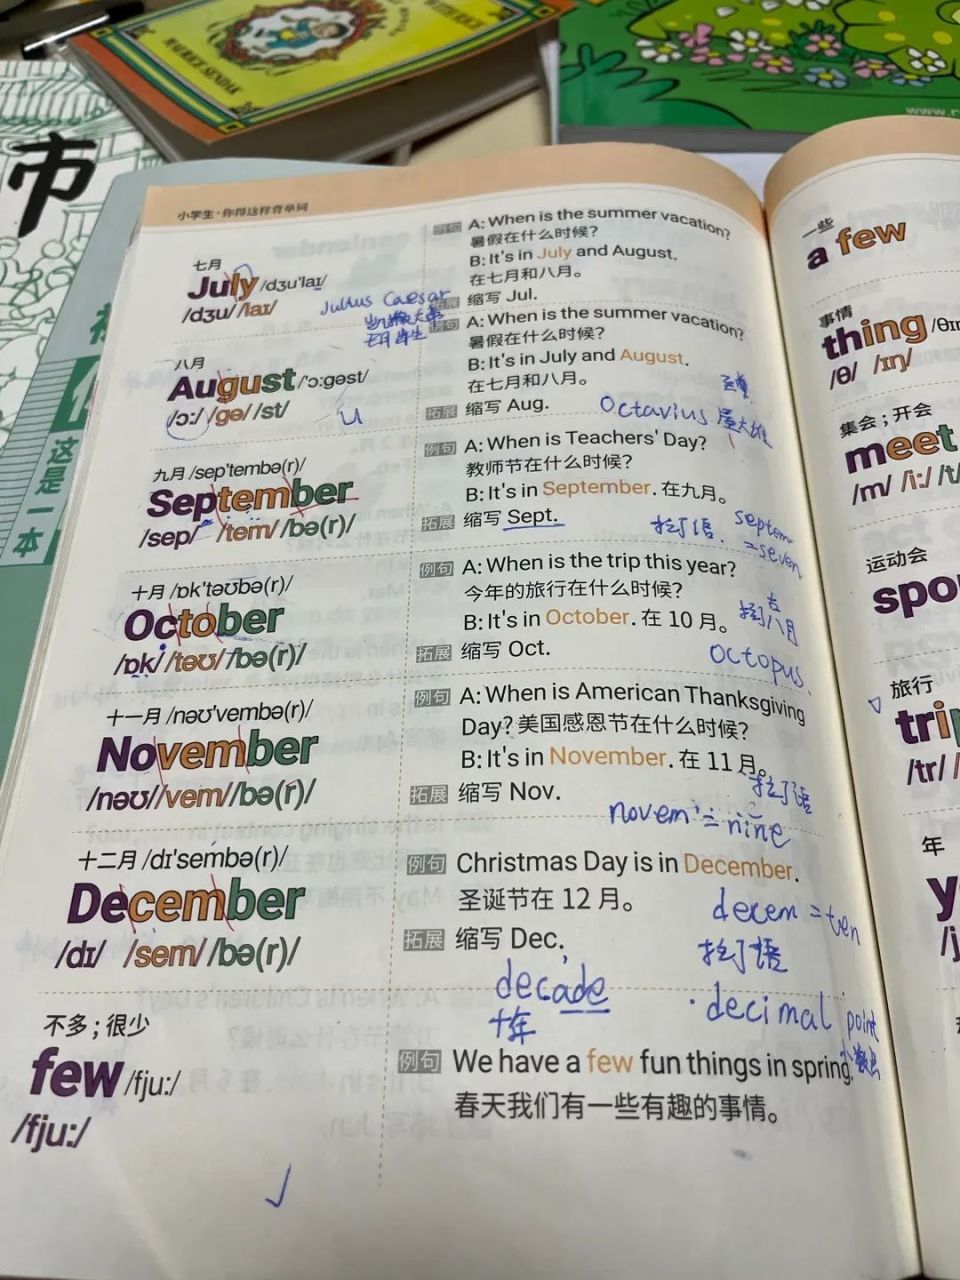 MAURICE SENDAK
WITH RICE
市
这是一本
小学生·你得这样背单词
七月
July /dʒu'laɪ/
/dʒu//laɪ/
Julius Caesar
凯撒大帝
例句 A: When is the summer vacation?
暑假在什么时候？
B: It's in July and August.
在七月和八月。
拓展 缩写 Jul.
八月
August /'ɔ:gəst/
/ɔ:/ /gə/ /st/
u
例句 A: When is the summer vacation?
暑假在什么时候？
B: It's in July and August.
在七月和八月。
拓展 缩写 Aug.
Octavius 屋大维
九月 /sep'tembə(r)/
September
/sep/ /tem/ /bə(r)/
例句 A: When is Teachers' Day?
教师节在什么时候？
B: It's in September. 在九月。
拓展 缩写 Sept.
拉丁语. septem
=seven
十月 /ɒk'təʊbə(r)/
October
/ɒk/ /təʊ/ /bə(r)/
例句 A: When is the trip this year?
今年的旅行在什么时候？
B: It's in October. 在 10 月。
拓展 缩写 Oct.
八月
octopus
十一月 /nəʊ'vembə(r)/
November
/nəʊ//vem//bə(r)/
例句 A: When is American Thanksgiving
Day? 美国感恩节在什么时候？
B: It's in November. 在 11 月。
拓展 缩写 Nov.
拉丁语
novem = nine
十二月 /dɪ'sembə(r)/
December
/dɪ/ /sem/ /bə(r)/
例句 Christmas Day is in December.
圣诞节在 12 月。
拓展 缩写 Dec.
decem = ten
拉丁语
decade
十年
decimal point
小数点
不多；很少
few /fju:/
/fju:/
例句 We have a few fun things in spring.
春天我们有一些有趣的事情。
一些
a few
事情
thing
/θ/ /ɪŋ/
集会；开会
meet
/m/ /i:/ /t/
运动会
spo
旅行
trip
/tr/
年
y
/j